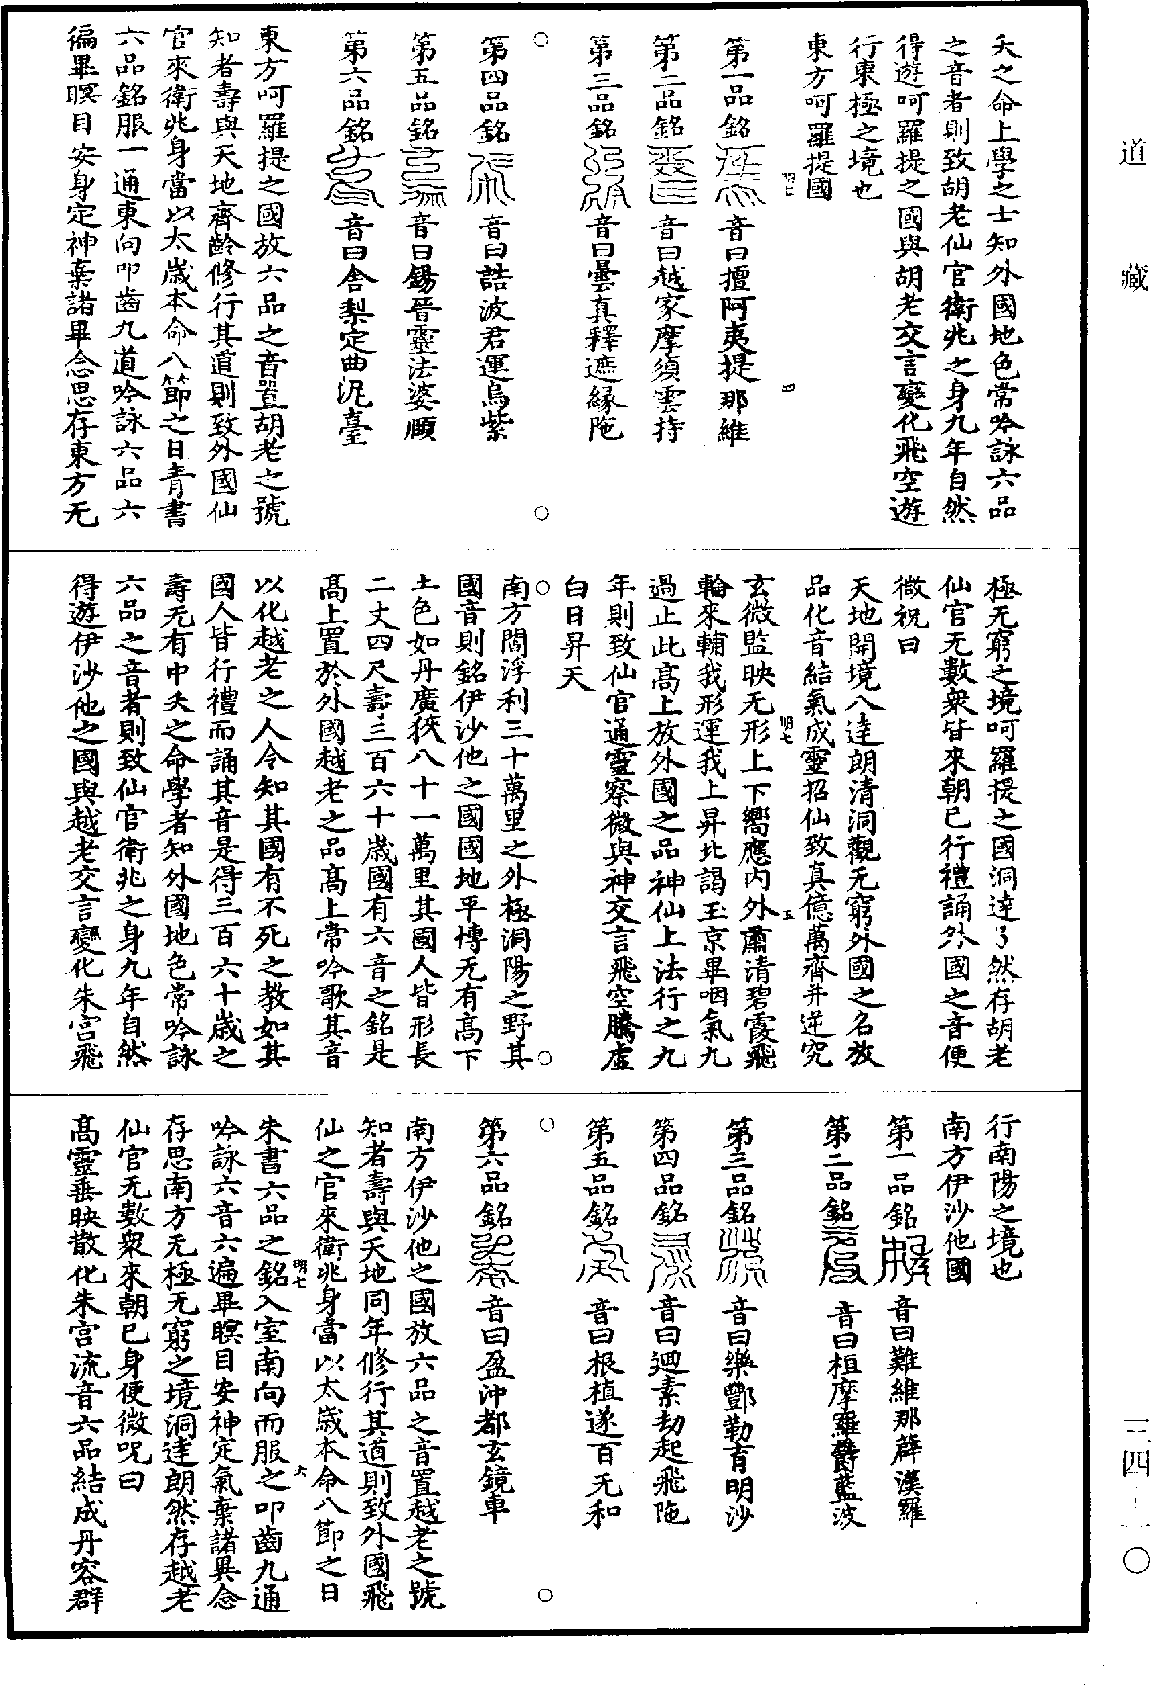 夭之命上學之士知外國地色常吟詠六品
之音者則致胡老仙官衛兆之身九年自然
得遊呵羅提之國與胡老交言變化飛空遊
行東極之境也
東方呵羅提國
第一品銘 音曰擅阿夷提那維
第二品銘 音曰越家摩須雲持
第三品銘 音曰曇真釋遮緣陁
第四品銘 音曰誥波君運烏紫
第五品銘 音曰錫晉靈法婆願
第六品銘 音曰舍梨定曲泥臺
東方呵羅提之國放六品之音置胡老之號
知者壽與天地齊齡修行其道則致外國仙
官來衛兆身當以太歲本命八節之日青書
六品銘服一通東向叩齒九道吟詠六品六
徧畢暝目安身定神棄諸畢念思存東方无
極无窮之境呵羅提之國洞達了然存胡老
仙官无數衆皆來朝已行禮誦外國之音便
微祝曰
天地開境八達朗清洞觀无窮外國之名放
品化音結氣成靈招仙致真億萬齊并逆究
玄微監映无形上下嚮應內外肅清碧霞飛
輪來輔我形運我上昇北謁玉京畢咽氣九
過止此高上放外國之品神仙上法行之九
年則致仙官通靈察微與神交言飛空騰虛
白日昇天
南方閻浮利三十萬里之外極洞陽之野其
國音則銘伊沙他之國國地平博无有高下
土色如丹廣狹八十一萬里其國人皆形長
二丈四尺壽三百六十歲國有六音之銘是
高上置於外國越老之品高上常吟歌其音
以化越老之人令知其國有不死之教如其
國人皆行禮而誦其音是得三百六十歲之
壽无有中夭之命學者知外國地色常吟詠
六品之音者則致仙官衛兆之身九年自然
得遊伊沙他之國與越老交言變化朱宮飛
行南陽之境也
南方伊沙他國
第一品銘 音曰難維那薜漢羅
第二品銘 音曰桓摩羅爵藍波
第三品銘 音曰樂酆勒育明沙
第四品銘 音曰迴素劫起飛陁
第五品銘 音曰根植遂百无和
第六品銘 音曰盈沖都玄鏡車
南方伊沙他之國放六品之音置越老之號
知者壽與天地同年修行其道則致外國飛
仙之官來衛兆身當以太歲本命八節之日
朱書六品之銘入室南向而服之叩齒九通
吟詠六音六遍畢暝目安神定氣棄諸異念
存思南方无極无窮之境洞達朗然存越老
仙官无數衆來朝已身便微呪曰
高靈垂映散化朱宮流音六品結成丹容群
道藏
三四—一〇